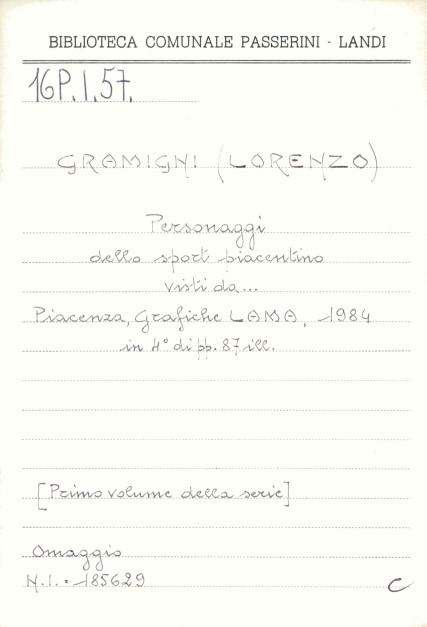 BIBLIOTECA COMUNALE PASSERINI - LANDI
16P.I.57.
GRAMIGNI (LORENZO)
Personaggi
dello sport piacentino
visti da...
Piacenza, Grafiche LAMA, 1984
in 4° di pp. 87 ill.
[Primo volume della serie]
Omaggio
N.I. = 185629
C